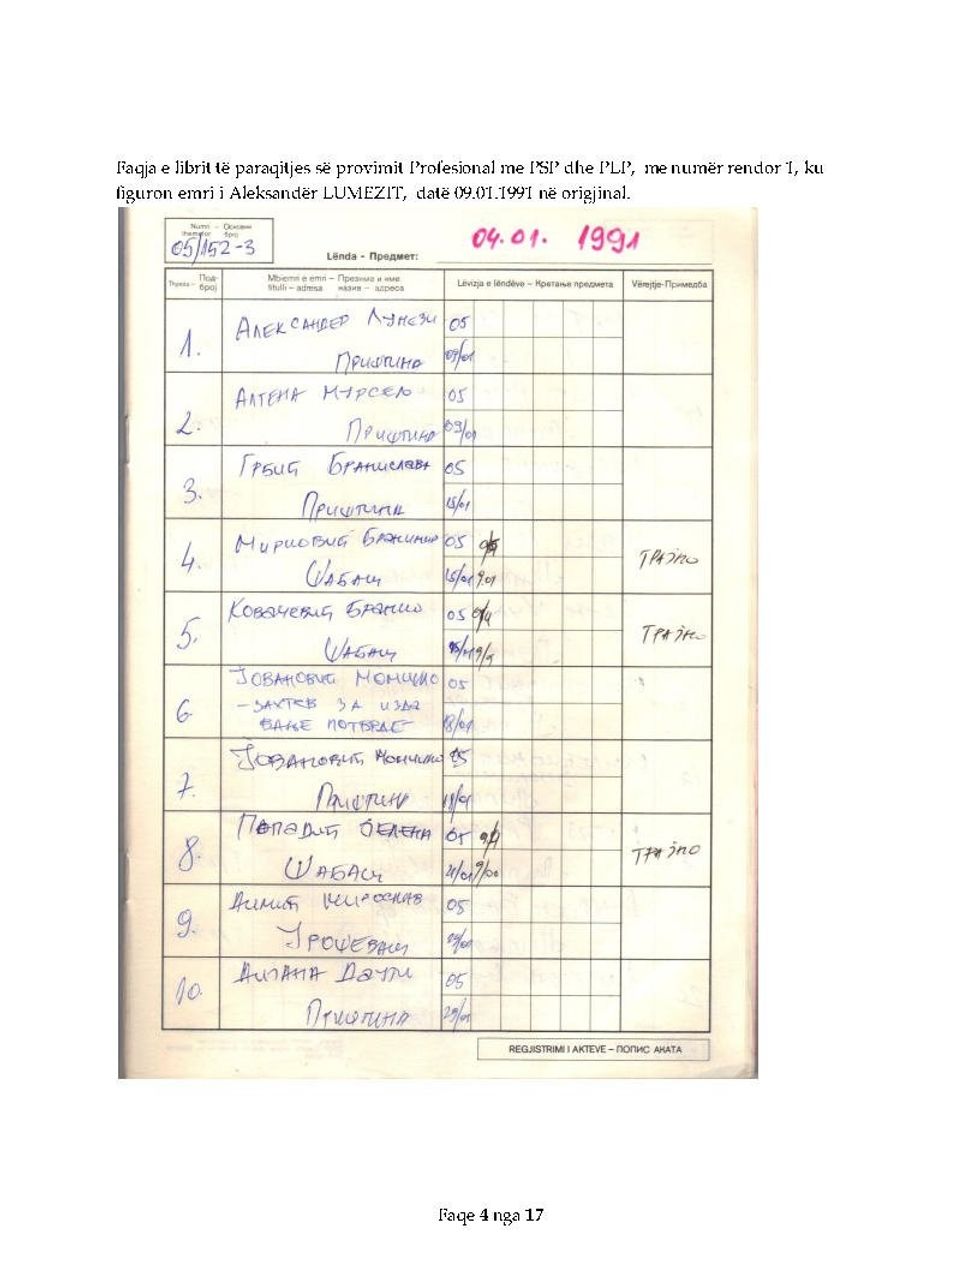 Faqja e librit të paraqitjes së provimit Profesional me PSP dhe PLP, me numër rendor 1, ku
figuron emri i Aleksandër LUMEZIT, datë 09.01.1991 në origjinal.
Numri – Основни
themelor број
05/152-3
Lënda - Предмет:
04.01. 1991
Под-
број
Mbiemri e emri – Презиме и име
titulli – adresa назив – адреса
Lëvizja e lëndëve – Кретање предмета
Vërejtje-Примедба
1.
Александер Лумези
05
Приштина
09/01
2.
Алтена Мурсељ
05
Приштина
09/01
3.
Грбић Бранислава
05
Приштина
15/01
4.
05
Шабац
15/01 9.01
Трајно
5.
Ковачевић Бранко
05
Шабац
Трајно
6
Јовановић Момчило
05
- захтев за изда
вање потврде
18/01
7.
Јовановић Момчило
05
Приштина
18/01
8.
Јелена
05
Шабац
21/01
Трајно
9.
Мирослав
05
Урошевац
10.
Дијана Даути
05
Приштина
29/01
REGJISTRIMI I AKTEVE – ПОПИС АКАТА
Faqe 4 nga 17